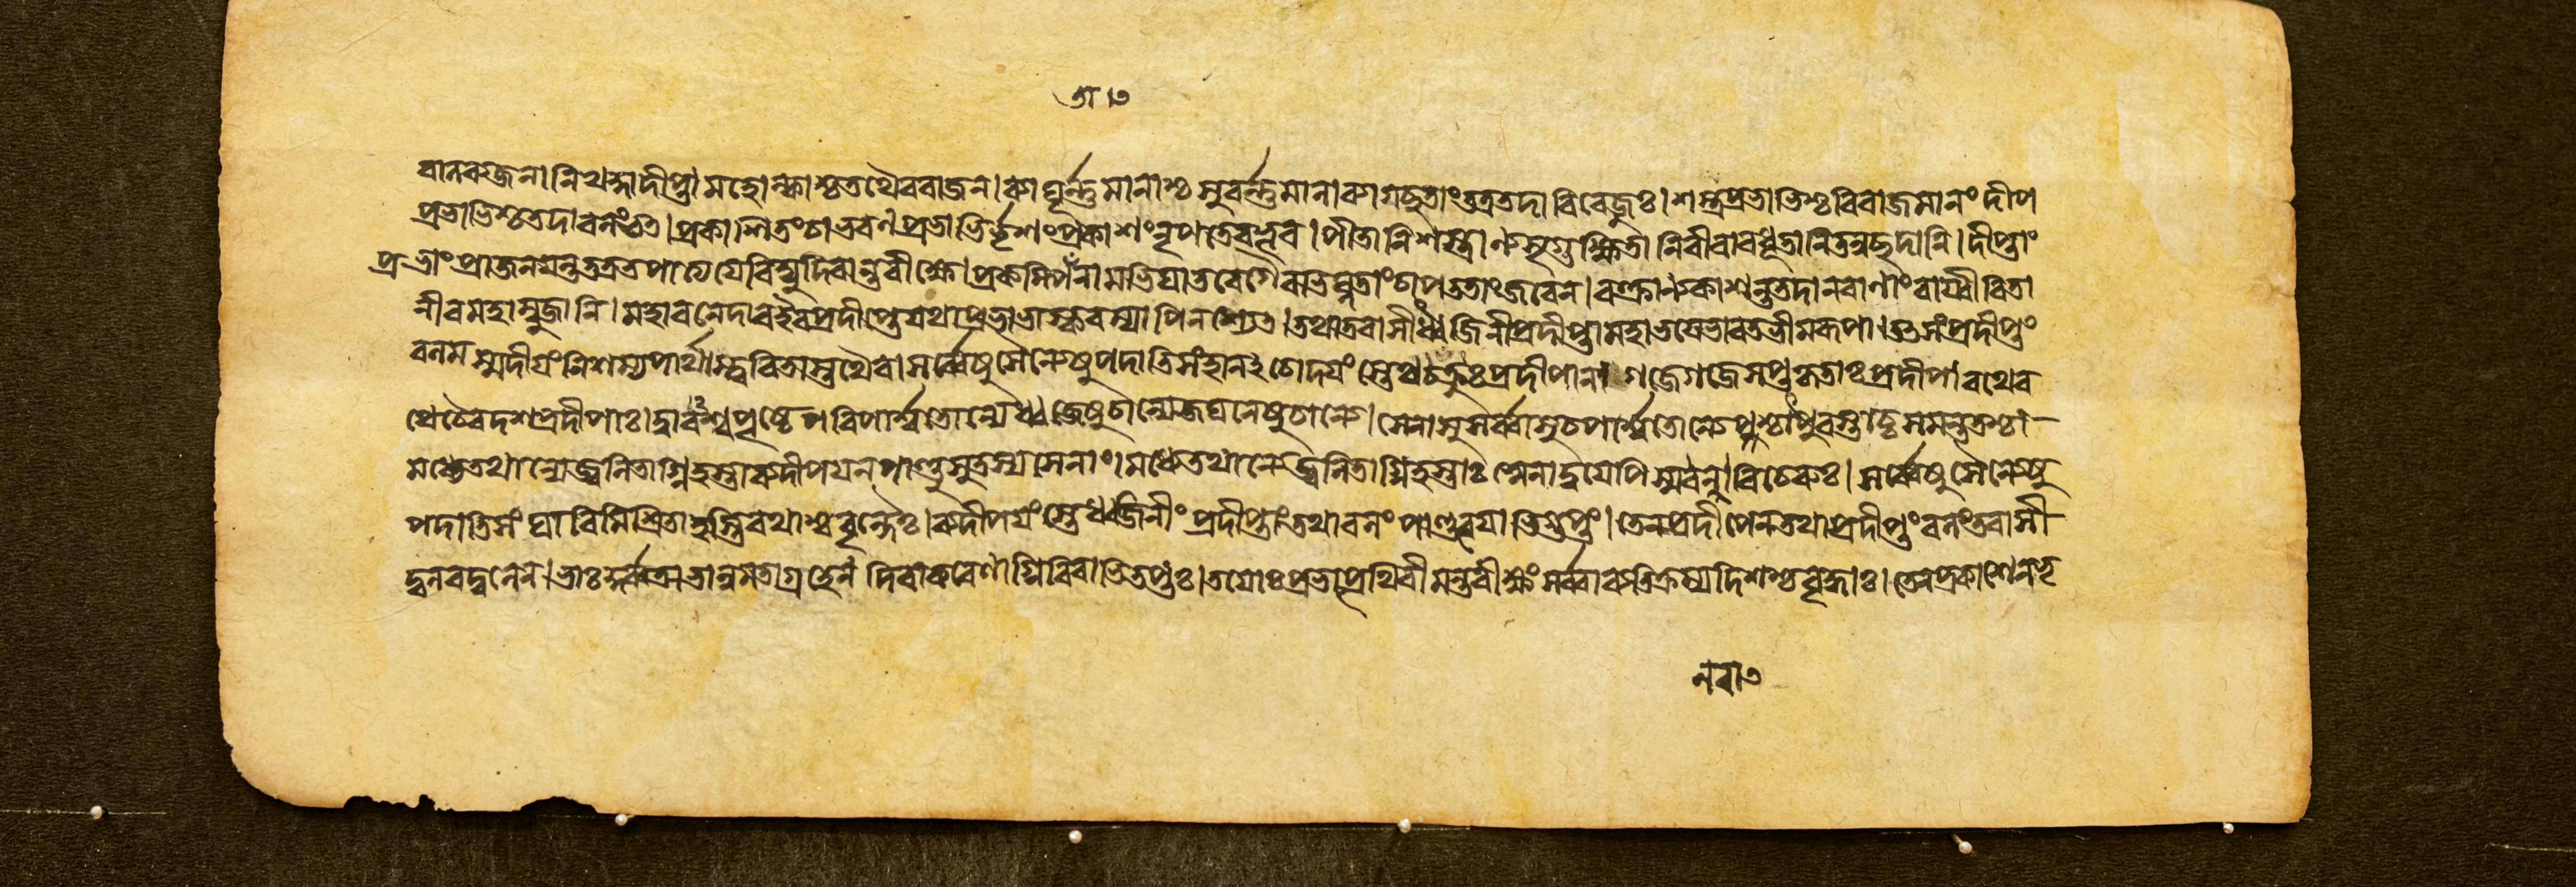 তা ৩
বানবৰজনানিখড়্গাদীপ্তামহোল্কাশ্চতথৈবৰাজন।ব্যাঘূৰ্ন্নমানাশ্চসুবৰ্ন্নমানাব্যাযছতাংতত্রতদাবিৰেজুঃ।শস্ত্রপ্রভাভিশ্চবিৰাজমানংদীপ
প্রভাভিশ্চতদাবলংতৎ।প্রকাশিতংচাভৰণপ্রভাভিৰ্ভৃশংপ্রকাশংনৃপতেবভূব।পীতানিশস্ত্রাণ্যসৃগুক্ষিতানিবীৰাবধূতানিতনুছদানি।দীপ্তাং
প্রভাংপ্রাজনযন্ততত্রতপাত্যযেবিদ্যুদিবান্তৰীক্ষে।প্রকম্পিতানামভিঘাতবেগৈৰভিঘ্নতাংচাপততাংজবেন।বক্ত্রাণ্যকাশন্ততদানৰাণাংবায্বীৰিতা
নীবমহাম্বুজানি।মহাবনেদাবইবপ্রদীপ্তেযথাপ্রভাভাস্কৰস্যাপিনশ্যেৎ।তথাতবাসীদ্ধ্বজিনীপ্রদীপ্তামহাভযেভাৰতভীমৰূপা।তৎসংপ্রদীপ্তং
বলমস্মদীযংনিশম্যপাৰ্থাস্ত্বৰিতাস্তথৈব।সৰ্ব্বেষুসৈন্যেষুপদাতিসংঘানচোদযংস্তেথচক্রুঃপ্রদীপান।গজেগজেসপ্তকৃতাঃপ্রদীপাৰথেৰ
থেচৈবদশপ্রদীপাঃ।দ্বাবশ্বপৃষ্ঠেপৰিপাৰ্শ্বতোন্যেধ্বজেষুচান্যেজঘনেষুচান্যে।সেনাসুসৰ্ব্বাসুচপাৰ্শ্বতোন্যেপশ্চাৎপুৰস্তাচ্চসমন্ততশ্চ।
মধ্যেতথান্যেজ্বলিতাগ্নিহস্তাব্যদীপযনপাণ্ডুসুতস্যসেনাং।মধ্যেতথান্যেজ্বলিতাগ্নিহস্তাঃসেনাদ্বযেপিস্মনৰাবিচেৰুঃ।সৰ্ব্বেষুসৈন্যেষু
পদাতিসংঘাবিমিশ্রিতাহস্তিৰথাশ্ববৃন্দৈঃ।ব্যদীপযংস্তেধ্বজিনীংপ্রদীপ্তাংতথাবলংপাণ্ডবেযাভিগুপ্তং।তেনপ্রদীপেনতথাপ্রদীপ্তংবলংতবাসী
দ্বলবদ্বলেন।ভাঃকুৰ্ব্বতাভানুমতাগ্রহেনদিবাকৰেণাগ্নিৰিবাভিতপ্তঃ।তযোঃপ্রভাপৃথিবীমন্তৰীক্ষংসৰ্ব্বাব্যতিক্রম্যদিশশ্চবৃদ্ধাঃ।তেনপ্রকাশেনভৃ
নৰা৩